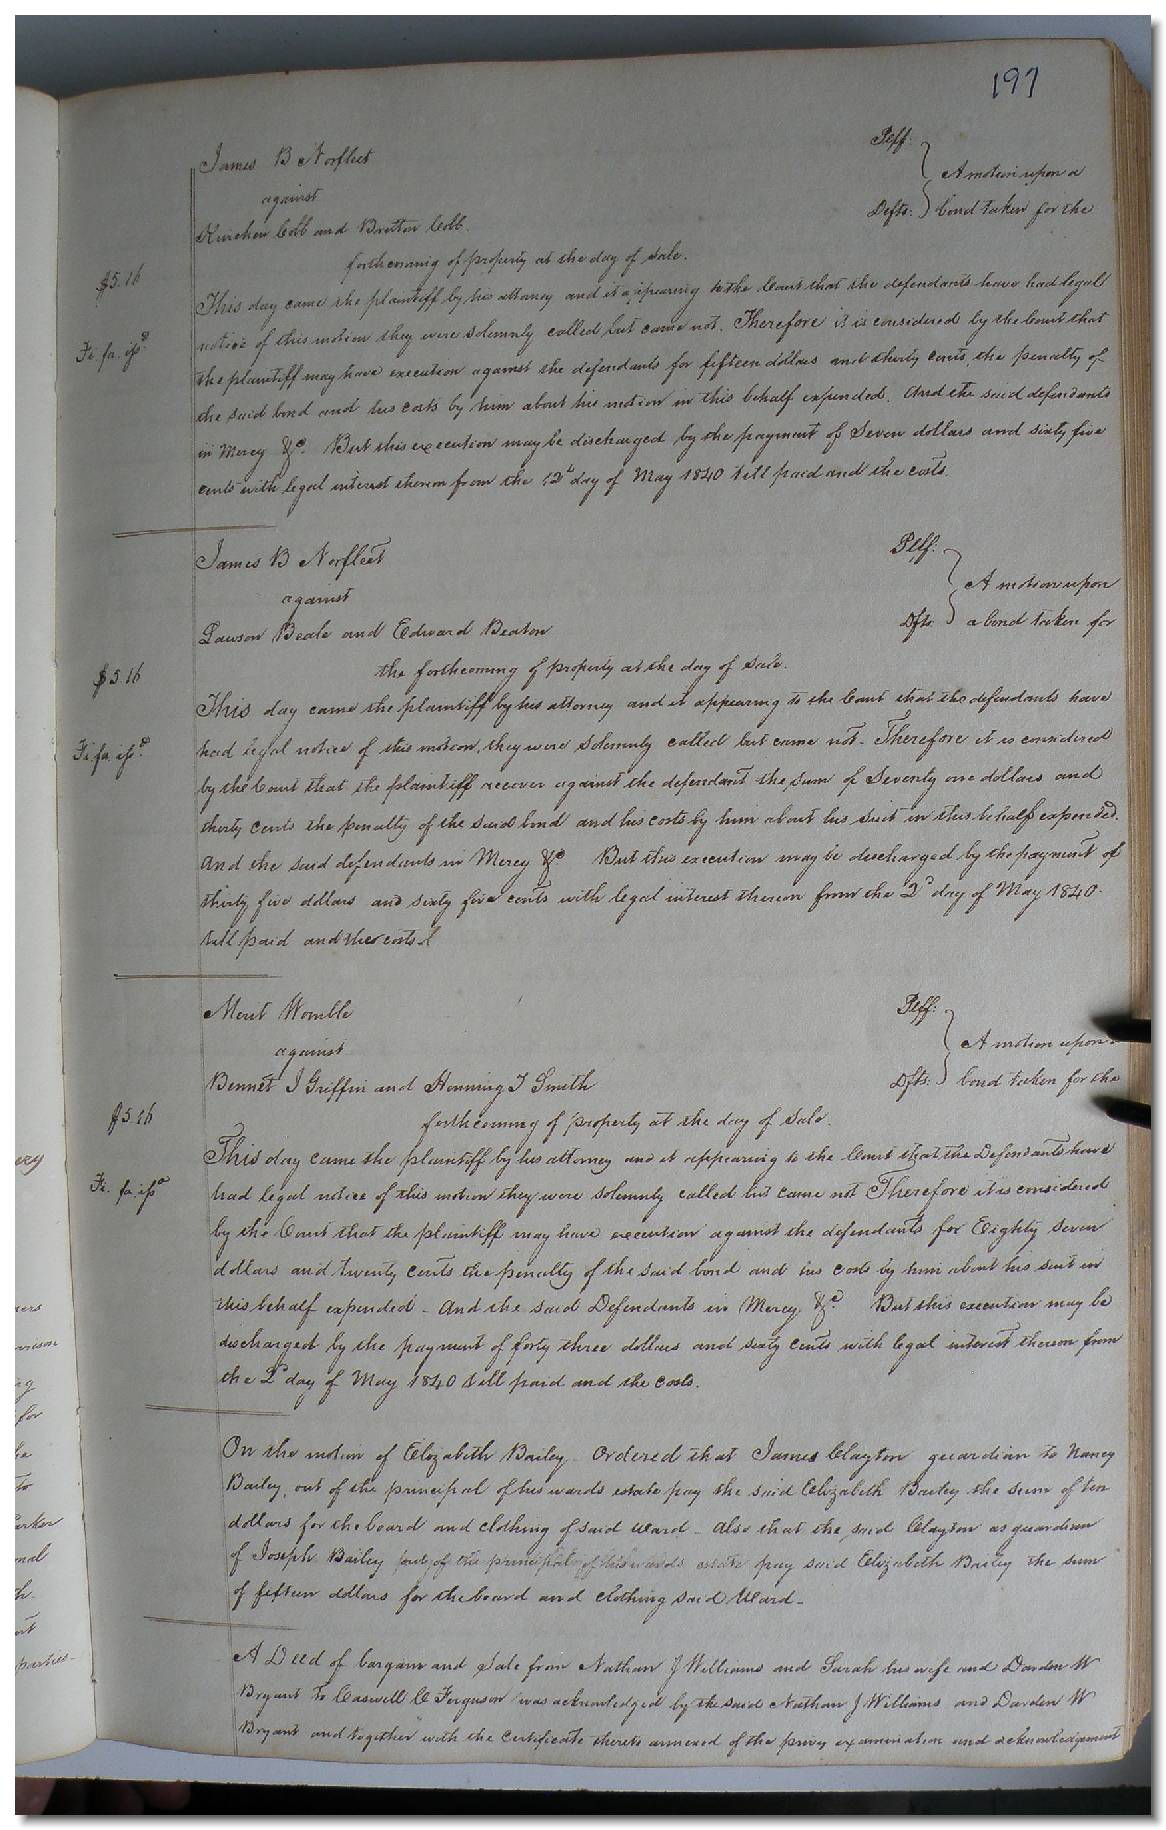 197
James B Norfleet Plff.
against A motion upon a
Kinchen Cobb and Britton Cobb. Defts. bond taken for the
forthcoming of property at the day of sale.
$5.16
This day came the plaintiff by his attorney and it appearing to the Court that the defendants have had legal
notice of this motion they were solemnly called but came not. Therefore it is considered by the Court that
Fi. fa. issd.
the plaintiff may have execution against the defendants for fifteen dollars and thirty cents, the penalty of
the said bond and his costs by him about his motion in this behalf expended. And the said defendants
in Mercy &c. But this execution may be discharged by the payment of Seven dollars and sixty five
cents with legal interest thereon from the 2d day of May 1840 till paid and the costs.
James B Norfleet Plff.
against A motion upon
Lawson Beale and Edward Beaton Dfts. a bond taken for
the forthcoming of property at the day of sale.
$5.16
This day came the plaintiff by his attorney and it appearing to the Court that the defendants have
had legal notice of this motion, they were solemnly called but came not. Therefore it is considered
Fi. fa. issd.
by the Court that the plaintiff recover against the defendant the sum of Seventy one dollars and
thirty cents the penalty of the said bond and his costs by him about his suit in this behalf expended.
And the said defendants in Mercy &c. But this execution may be discharged by the payment of
thirty five dollars and sixty five cents with legal interest thereon from the 2d day of May 1840.
till paid and the costs
Merit Womble Plff.
against A motion upon a
Bennet J Griffin and Henning T Smith Dfts. bond taken for the
forthcoming of property at the day of sale.
$5.16
This day came the plaintiff by his attorney and it appearing to the Court that the Defendants have
had legal notice of this motion they were solemnly called but came not Therefore it is considered
Fi. fa. issd
by the Court that the plaintiff may have execution against the defendants for Eighty seven
dollars and twenty cents the penalty of the said bond and his costs by him about his suit in
this behalf expended - And the said Defendants in Mercy &c. But this execution may be
discharged by the payment of forty three dollars and sixty cents with legal interest thereon from
the 2d day of May 1840 till paid and the costs.
On the motion of Elizabeth Bailey. Ordered that James Clayton guardian to Nancy
Bailey, out of the principal of his wards estate pay the said Elizabeth Bailey the sum of ten
dollars for the board and clothing of said ward - also that the said Clayton as guardian
of Joseph Bailey out of the principal of his wards estate pay said Elizabeth Bailey the sum
of fifteen dollars for the board and clothing said Ward -
A Deed of bargain and sale from Nathan J Williams and Sarah his wife and Darden W
Bryant to Caswell C Ferguson was acknowledged by the said Nathan J Williams and Darden W
Bryant and together with the certificate thereto annexed of the privy examination and acknowledgement